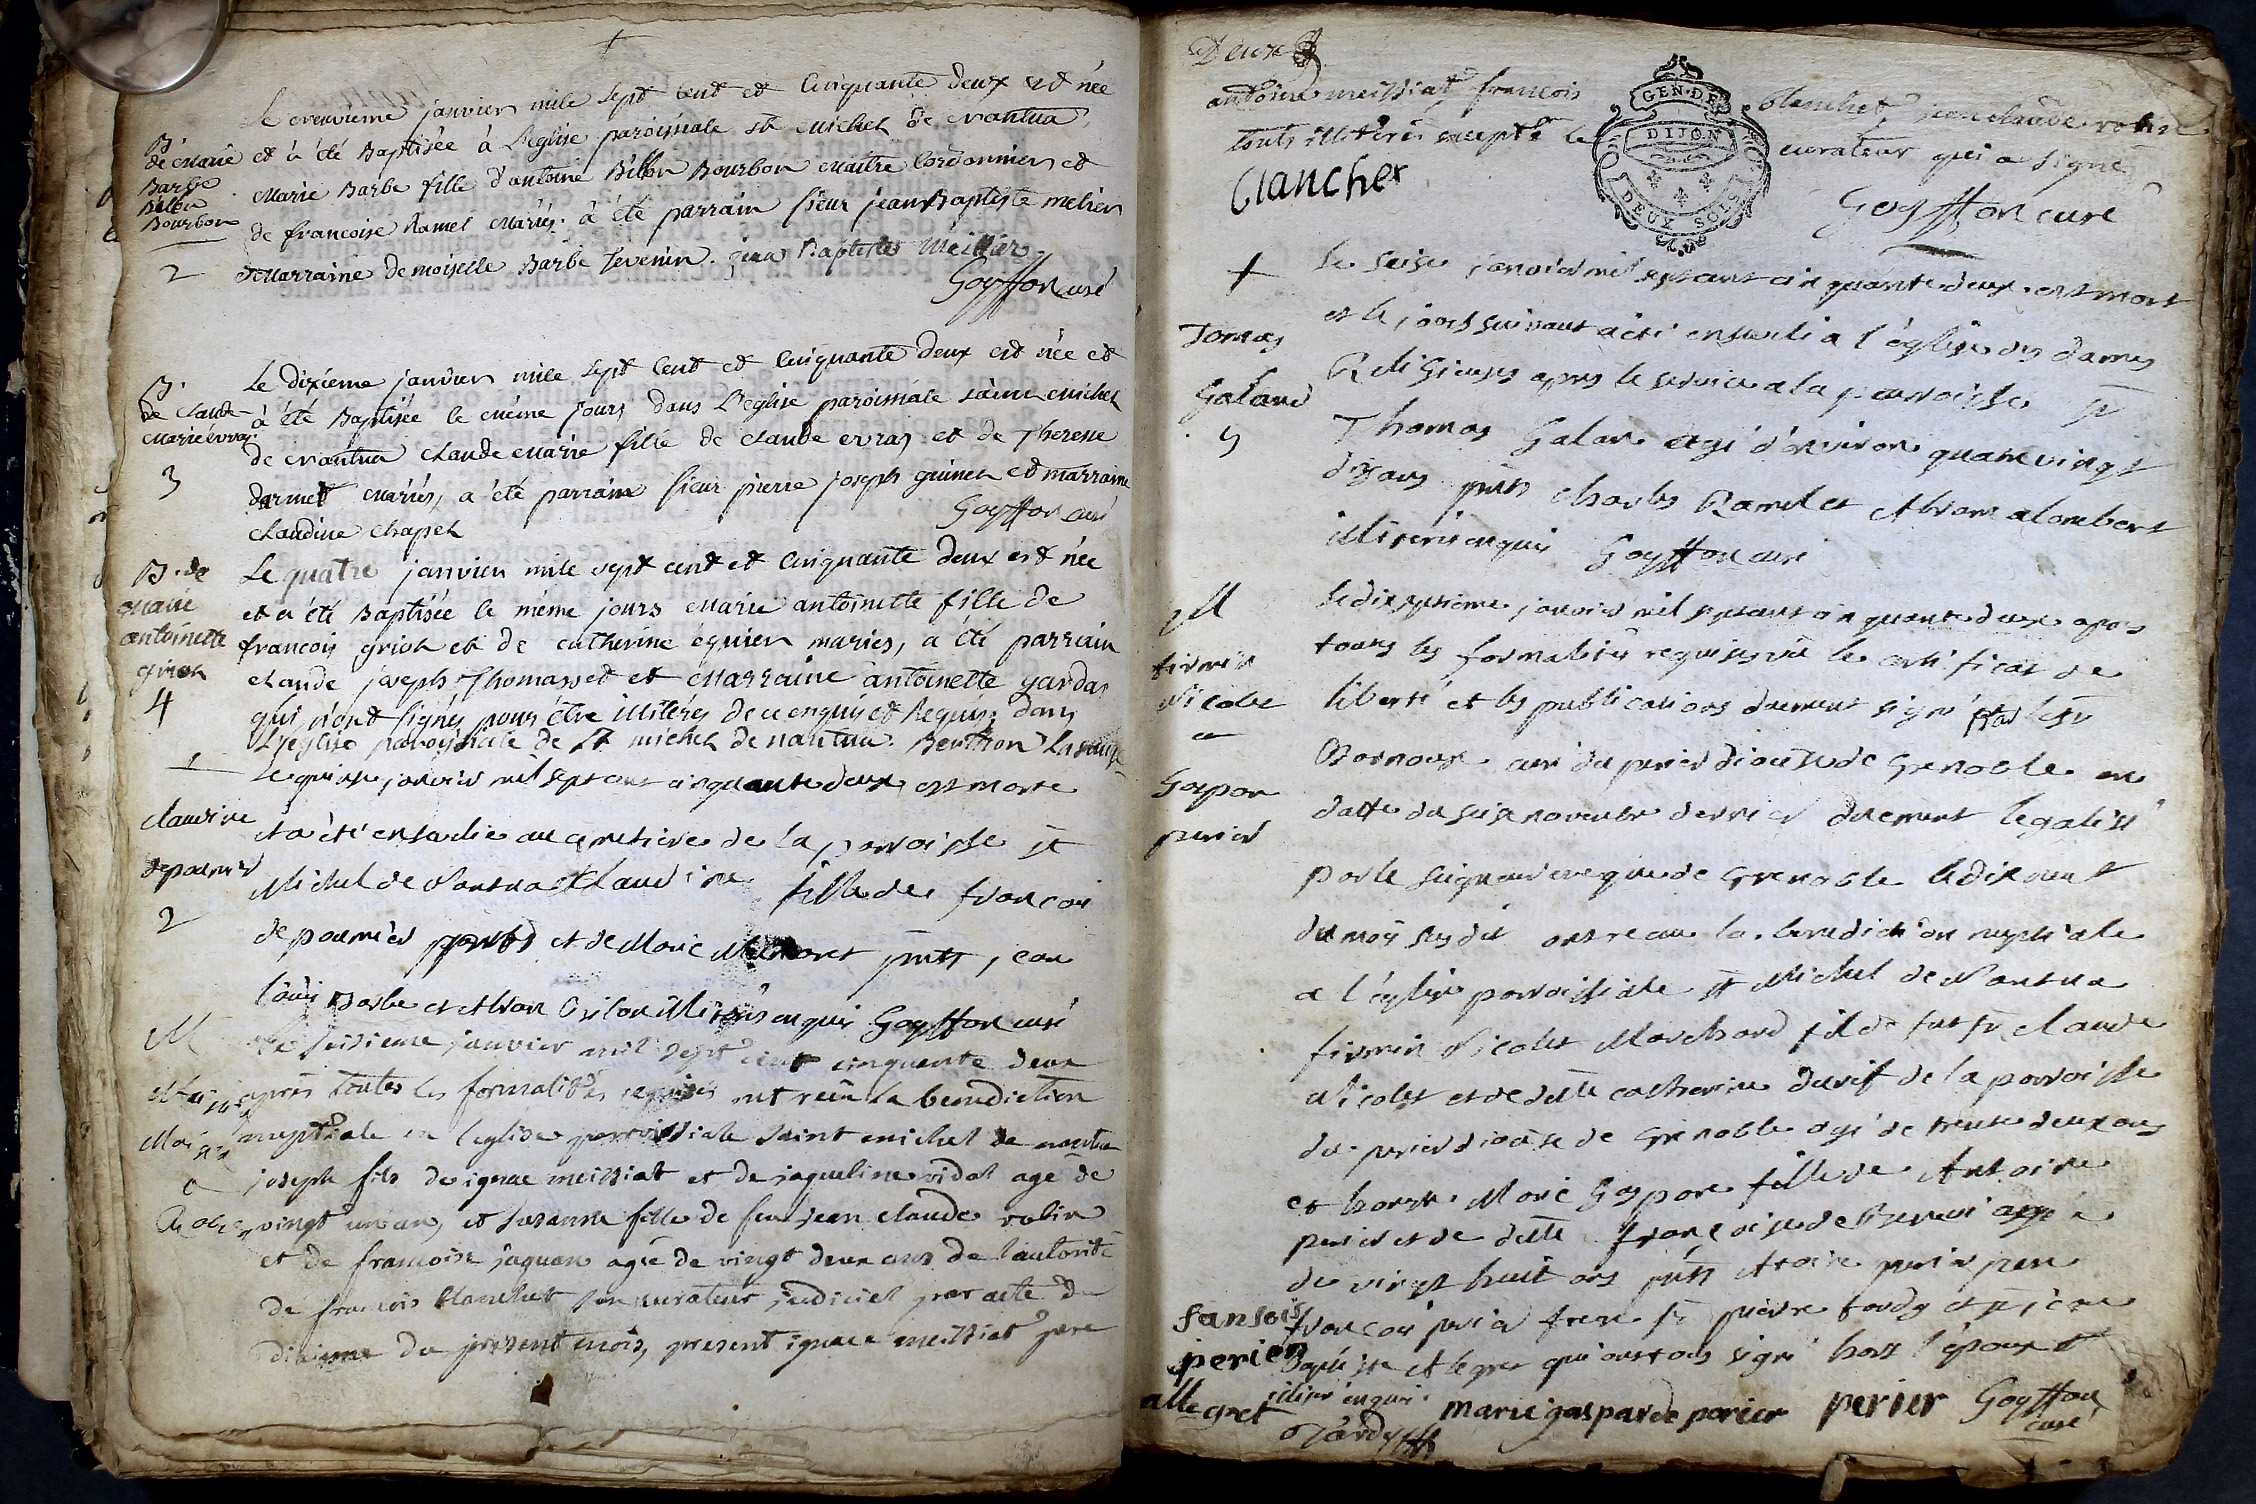 B.
de Marie
Barbe
Billon
Bourbon
2
Le janvier mile sept cent et cinquante deux est née
et à été Baptisée à L'eglise paroissiale st Michel de nantua
Marie Barbe fille d'antoine Billon Bourbon Maitre Cordonnier et
de francoise Ramel Mariés. à été parrain sieur jean Baptiste melier
et Marraine demoiselle Barbe Tevenin. jean Baptiste Meillier
Goyffon curé
B.
de claude
Marie évray
3
Le dixieme janvier mile sept Cent et Cinquante deux est née et
à été Baptisée le méme jours dans L'eglise paroissiale saint Michel
de nantua claude Marie fille de claude evray et de Therese
darmet Mariés, a été parrain sieur pierre joseph guinet et marraine
claudine chapel
Goyffon curé
B. de
Marie
antoinette
griot
4
Le quatre janvier mile sept cent et Cinquante deux est née
et a été Baptisée le méme jours Marie antoinette fille de
francois griot et de catherine éguier mariés, a été parrain
claude joseph Thomasset et Marraine antoinette gardas
qui n'ont signés pour être illiterés de ce enquis et Requis, dans
L'eglise paroissiale de St michel de nantua. Berthon
claudine
depaurier
2
Le quinse janvier mil sept cent cinquante deux est morte
et a été ensevelie au cimetiere de la parroisse st
Michel de Nantua Claudine fille de francois
de paurier et de Marie pnts, jean
louis Barbe et illiterés enquis Goyffon curé
M
Meissiat
a
Robin
Le seisieme janvier mil sept cent cinquante deux
après toutes les formalités requises ont reçu la benediction
nuptiale en l'eglise parroissiale saint michel de nantua
joseph fils de ignace meissiat et de jaqueline vidal agé de
vingt un an, et susanne fille de feu jean claude robin
et de francoise jaquan agée de vingt deux ans de l'autorité
de francois blanchet son curateur judiciel par acte du
dixieme du present mois, present ignace meissiat pere
Deux
antoine meissiat, francois blanchet, jean claude robin
touts illiterés excepté le curateur qui a signé
GEN. DE
DIJON
DEUX SOLS
Clanchet
Goyffon curé
Tomas
Galand
3
Le seise janvier mil sept cent cinquante deux est mort
et le jours suivant a été enseveli a l'église des dames
Religieuses apres le service a la parroisse st
Thomas Galan agé d'environ quatre vingt
dix ans pnts charles Ramel et alombert
illiterés enquis Goyffon curé
M
firmin
Nicolet
a
Gaspar
perier
Le dix septieme janvier mil sept cent cinquante deux apres
toutes les formalités requises vû le certificat de
liberté et les publications duement signé par le sr
Bornoux curé du perier diocese de Grenoble en
datte du seise novembre dernier duement legalisé
par le seigneur eveque de Grenoble le dix neuf
du mois susdit ont recu la benediction nuptiale
a l'église parroissiale st Michel de Nantua
firmin Nicolet Marchand fil de fut sr claude
Nicolet et de dlle catherine durif de la parroisse
du perier diocese de Grenoble agé de trente deux ans
et honste Marie Gaspare fille de Antoine
perier et de dlle francoise de agée
de vingt huit ans pnts Antoine perier pere
francois perier frere sr pierre tardy et sr jean
Baptiste Alegret qui ont tous signé hors l'epoux
illiteré enquis
fansois
perier
allegret
Tardy
marie gasparde perier
perier
Goyffon
curé